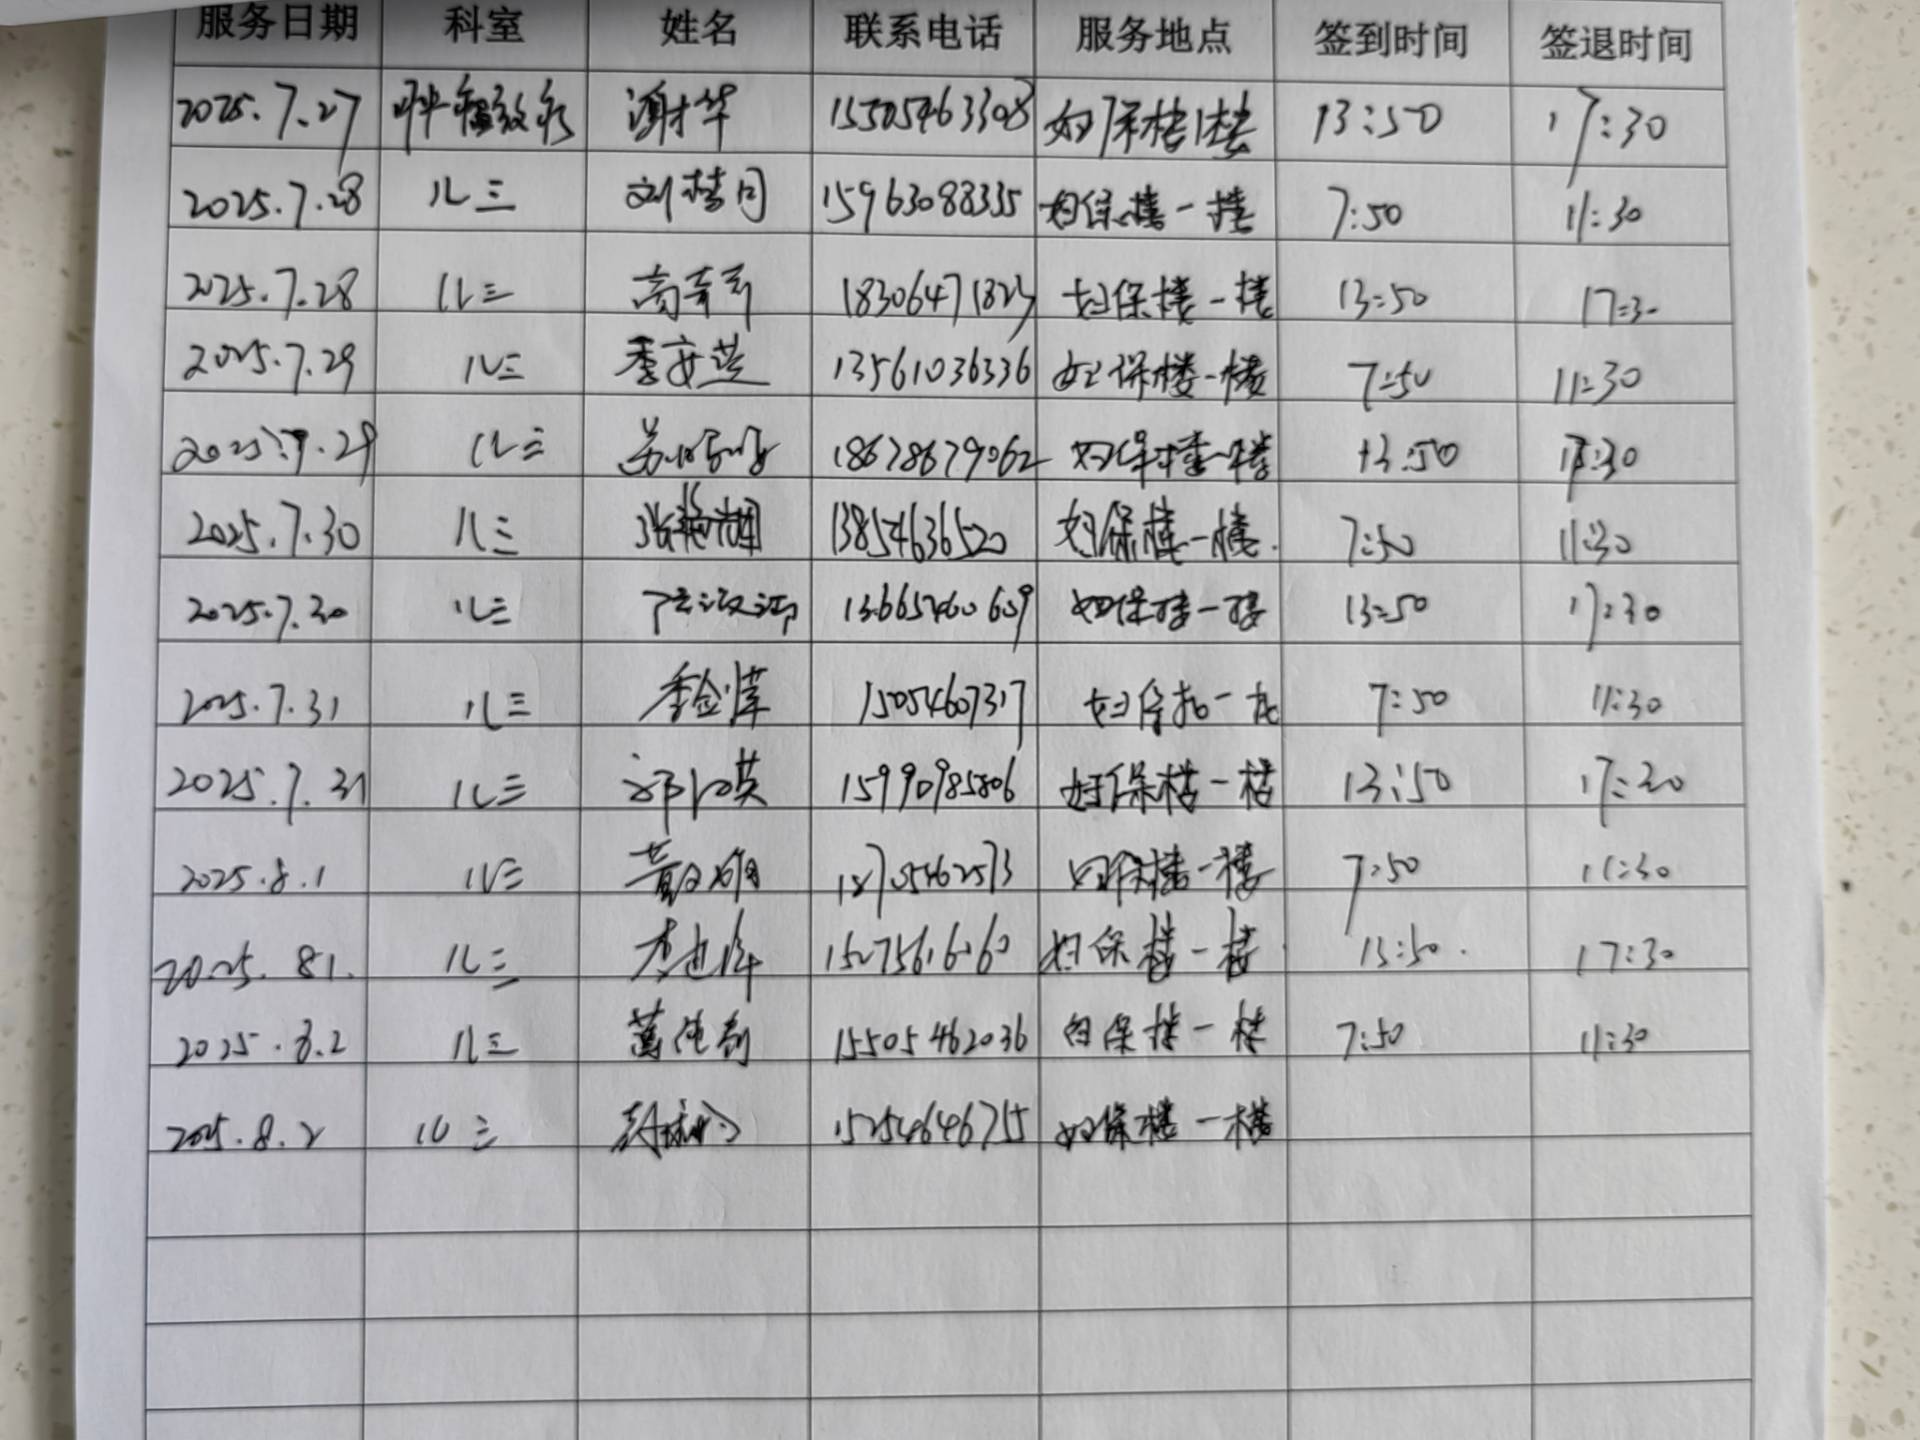 服务日期 科室 姓名 联系电话 服务地点 签到时间 签退时间
2025.7.27 华 15505463308 妇保楼1楼 13:50 17:30
2025.7.28 儿三 刘梦同 15963088335 妇保楼一楼 7:50 11:30
2025.7.28 儿三 高 18306471823 妇保楼一楼 13:50 17:30
2025.7.29 儿三 季安芝 13561036336 妇保楼一楼 7:50 11:30
2025.7.29 儿三 18678679062 妇保楼一楼 13:50 17:30
2025.7.30 儿三 张艳 13854636520 妇保楼一楼. 7:50 11:30
2025.7.30 儿三 13665460609 妇保楼一楼 13:50 17:30
2025.7.31 儿三 季金 15054607317 妇保 一 7:50 11:30
2025.7.31 儿三 英 15990985806 妇保楼一楼 13:50 17:30
2025.8.1 儿三 黄 妇保楼一楼 7:50 11:30
2025.8.1. 儿三 15275616060 妇保楼一楼 13:50. 17:30
2025.8.2 儿三 15505462036 妇保楼一楼 7:50 11:30
2025.8.2 儿三 15254646755 妇保楼一楼